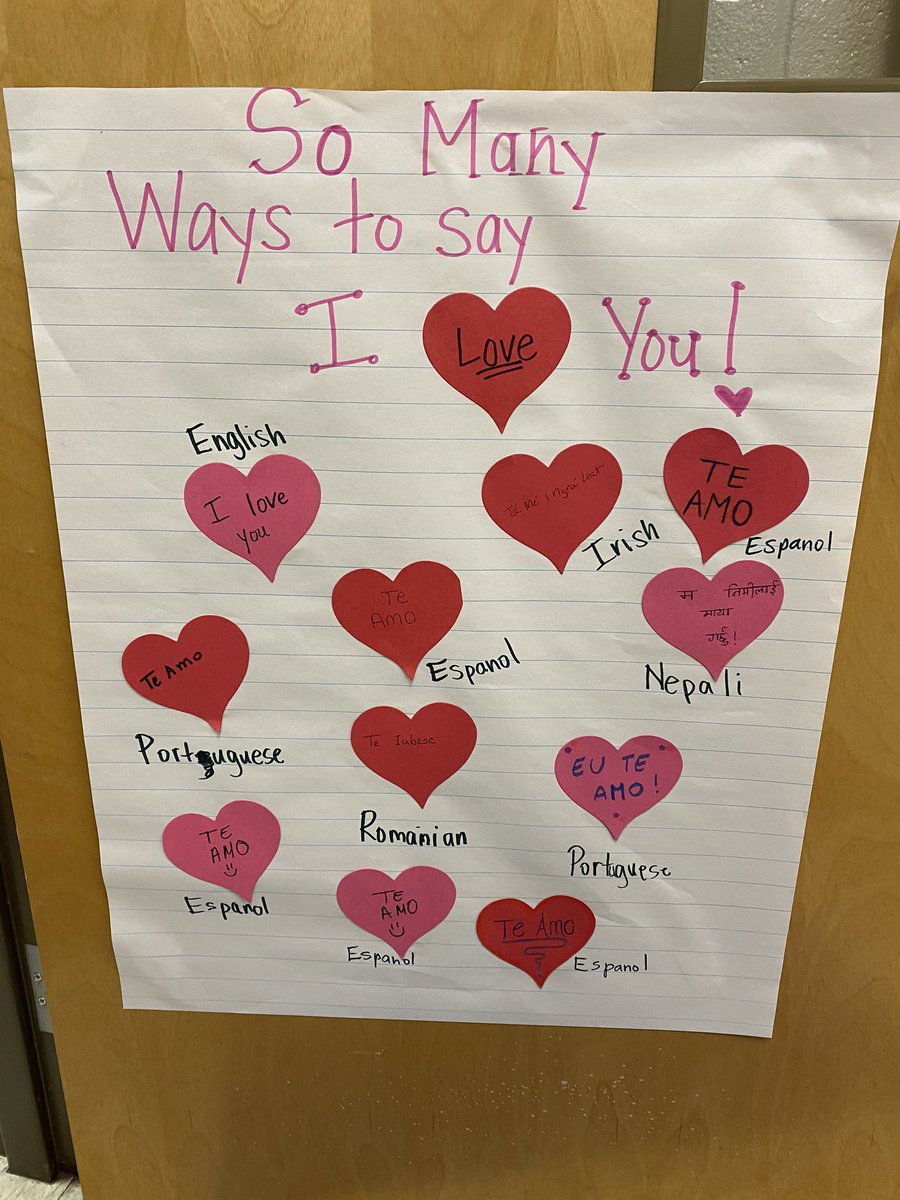 So Many
Ways to say
I Love You!
English
I love
you
Tá Mé i ngrá leat
Irish
TE
AMO
Espanol
TE
AMO
Espanol
म तिमीलाई
माया
गर्छु!
Nepali
Te Amo
Portuguese
Te Iubesc
Romanian
EU TE
AMO!
Portuguese
TE
AMO
Espanol
TE
AMO
Espanol
Te Amo
Espanol